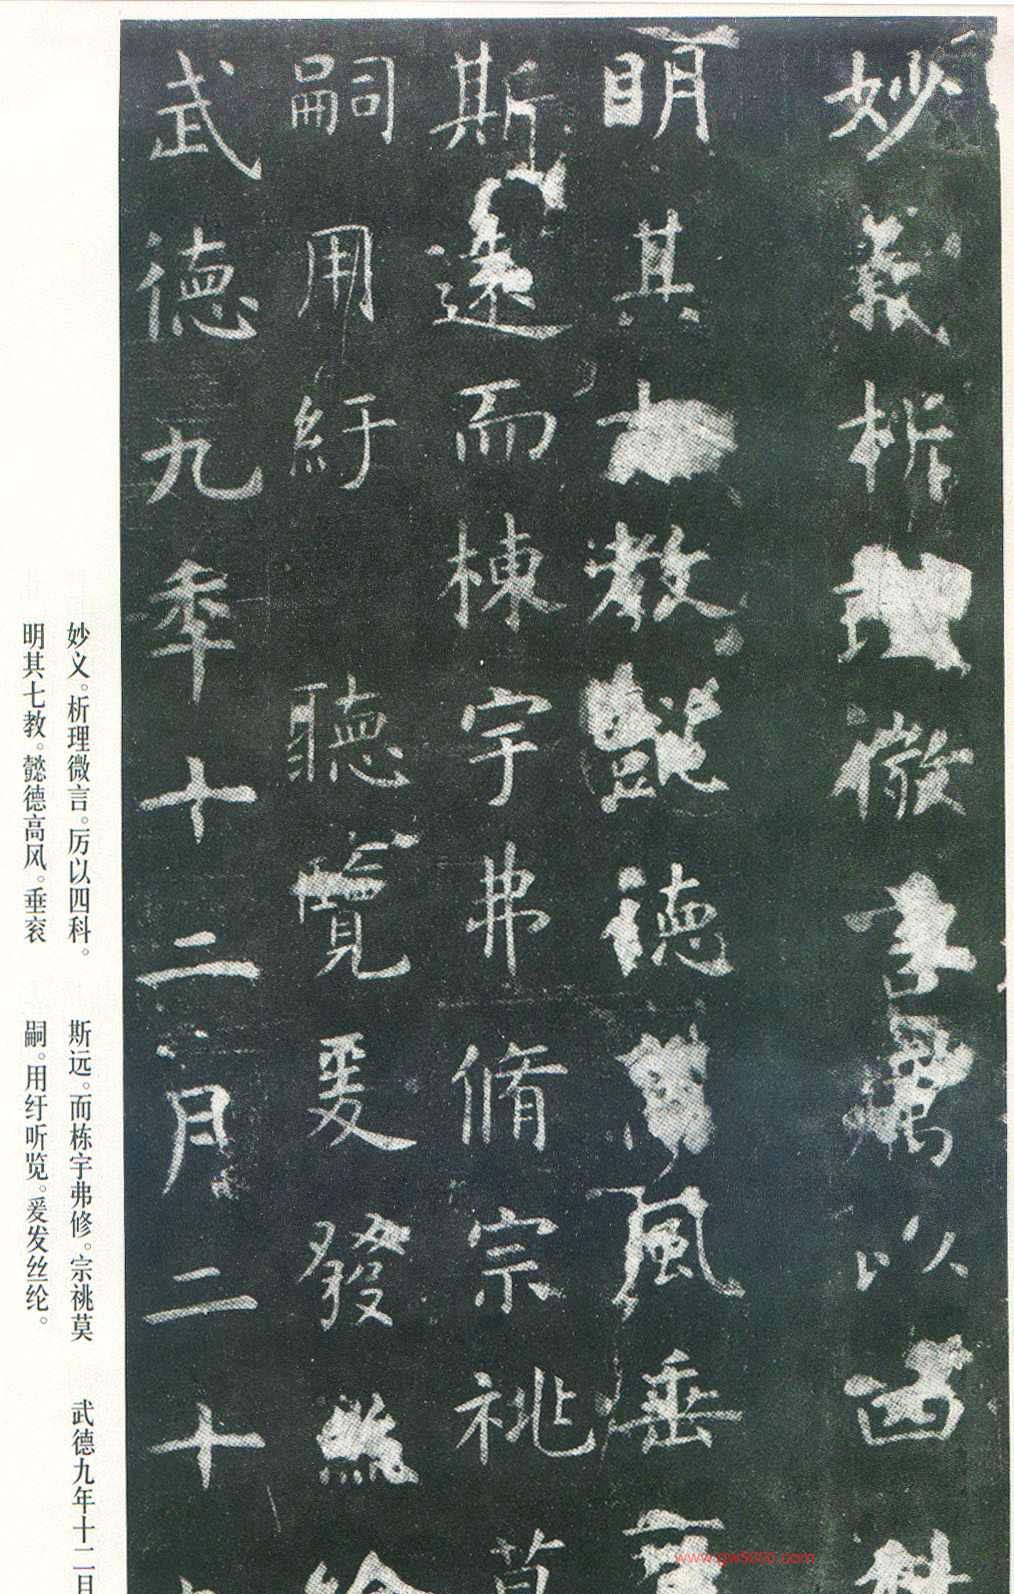 妙義析理微言厲以四
明其七教懿德風垂
斯遠而棟宇弗脩宗祧莫
嗣用紆聽覽爰發絲綸
武德九年十二月二十
妙义。析理微言。厉以四科。
明其七教。懿德高风。垂裒
斯远。而栋宇弗修。宗祧莫
嗣。用纡听览。爰发丝纶。
武德九年十二月
www.gw5000.com